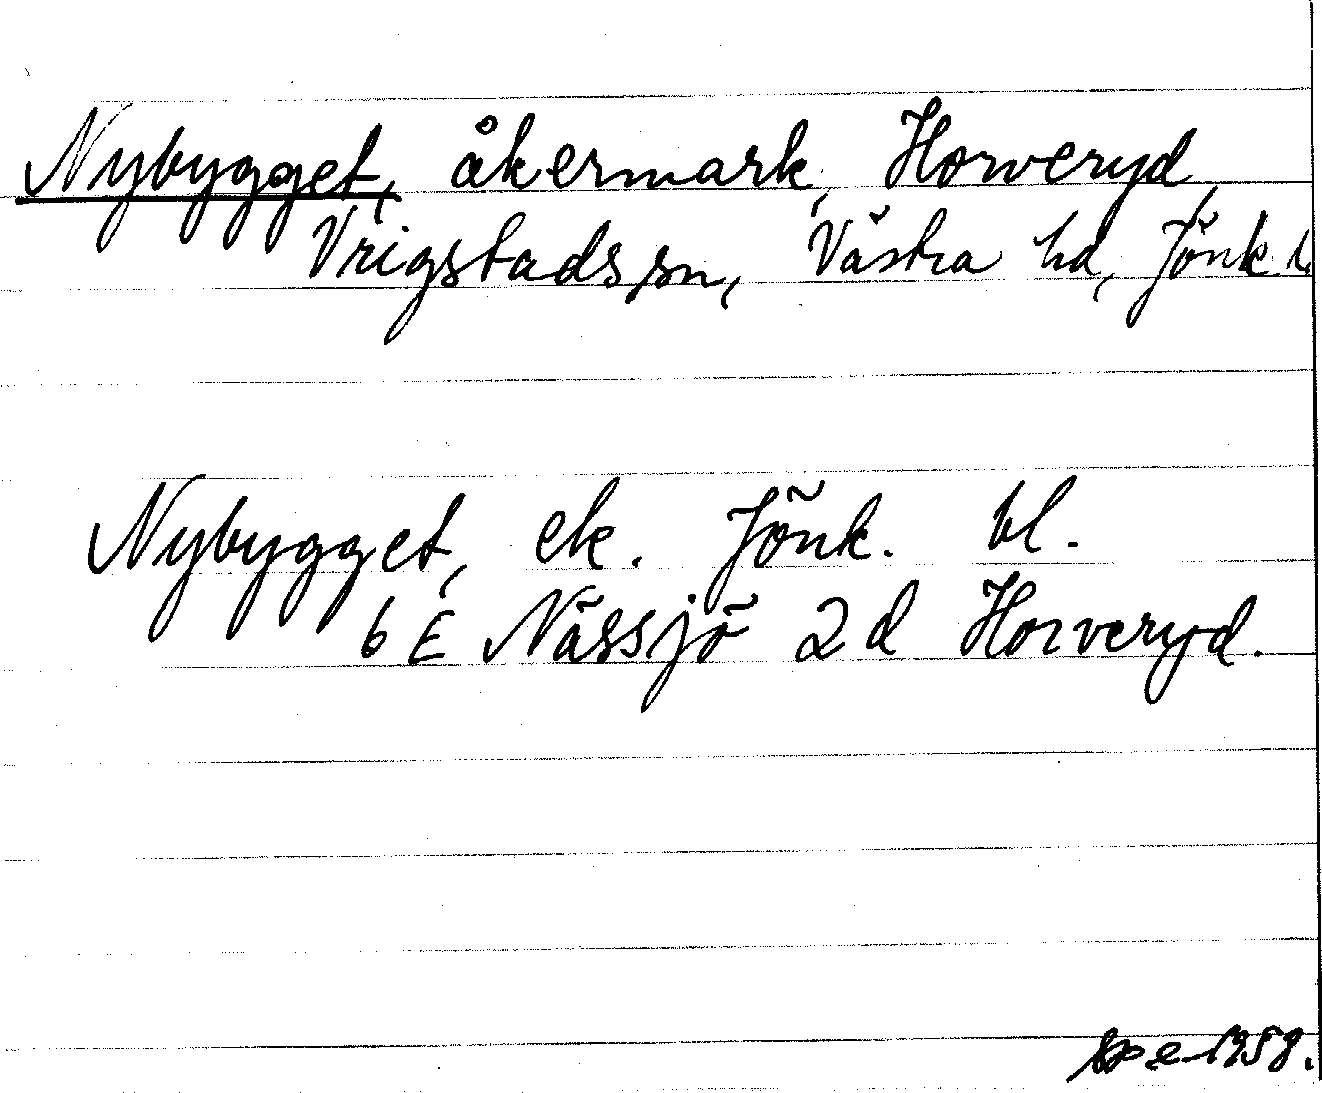 Nybygget, åkermark, Horveryd,
Vrigstads sn, Västra hd, Jönk. l.
Nybygget, ek. Jönk. bl.
6 E Nässjö 2d Horveryd.
1958.